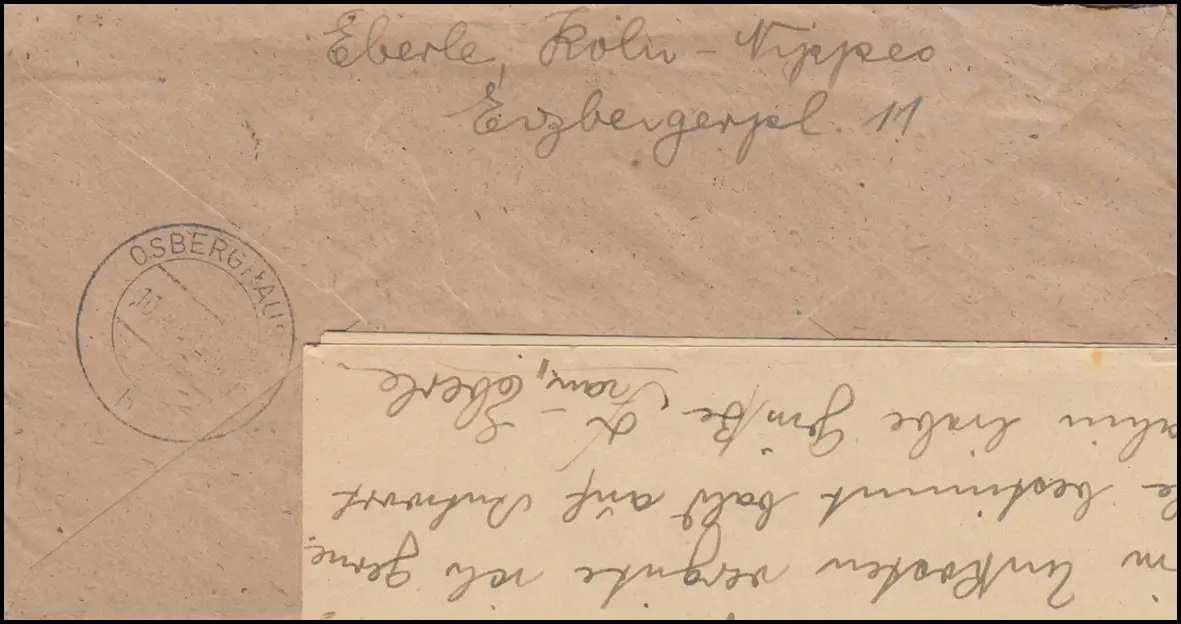 Eberle, Köln - Nippes
Erzbergerpl. 11
OSBERGHAUS
10.
Unkosten vergüte ich gerne.
bestimmt bald auf Antwort
liebe Grüße
Eberle